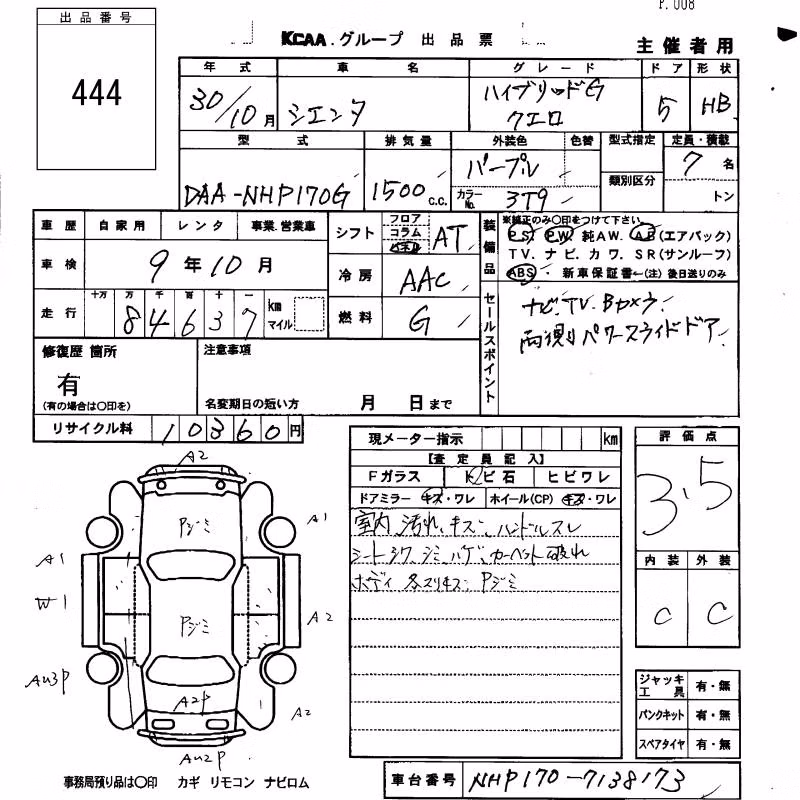 P.008
出品番号
444
KCAA.グループ 出品票
主催者用
年式 車名 グレード ドア 形状
30/10月 シエンタ ハイブリッドG クエロ 5 HB
型式 排気量 外装色 色替 型式指定 定員・積載
DAA-NHP170G 1500 c.c. パープル 7名
カラーNo. 3T9 類別区分 トン
車歴 自家用 レンタ 事業.営業車
シフト フロア コラム パネル AT
装備品
※純正のみ〇印をつけて下さい。
P.S. P.W. 純A.W. A.B(エアバック)
T.V. ナビ. カワ. S.R(サンルーフ)
ABS・ 新車保証書←(注) 後日送りのみ
車検 9年10月
冷房 AAC
走行 十万 万 千 百 十 一
84637 km マイル
燃料 G
セールスポイント
ナビ.TV.Bカメラ.
両側パワースライドドア.
修復歴 箇所
有
(有の場合は〇印を)
注意事項
名変期日の短い方 月 日まで
リサイクル料 10360円
現メーター指示 km
【査定員記入】
Fガラス トビ石 ヒビワレ
ドアミラー キズ・ワレ ホイール(CP) キズ・ワレ
室内 汚れ、キズ、ハンドルスレ
シートシワ、シミ、ハゲ、カーペット破れ
ボディ 各スリキズ、Pジミ
評価点
3.5
内装 外装
C C
A2
Pジミ
A1
A1
W1
Pジミ
A2
AU3P
A2P
A2
AU2P
ジャッキ工具 有・無
パンクキット 有・無
スペアタイヤ 有・無
事務局預り品は〇印 カギ リモコン ナビロム
車台番号 NHP170-7138173